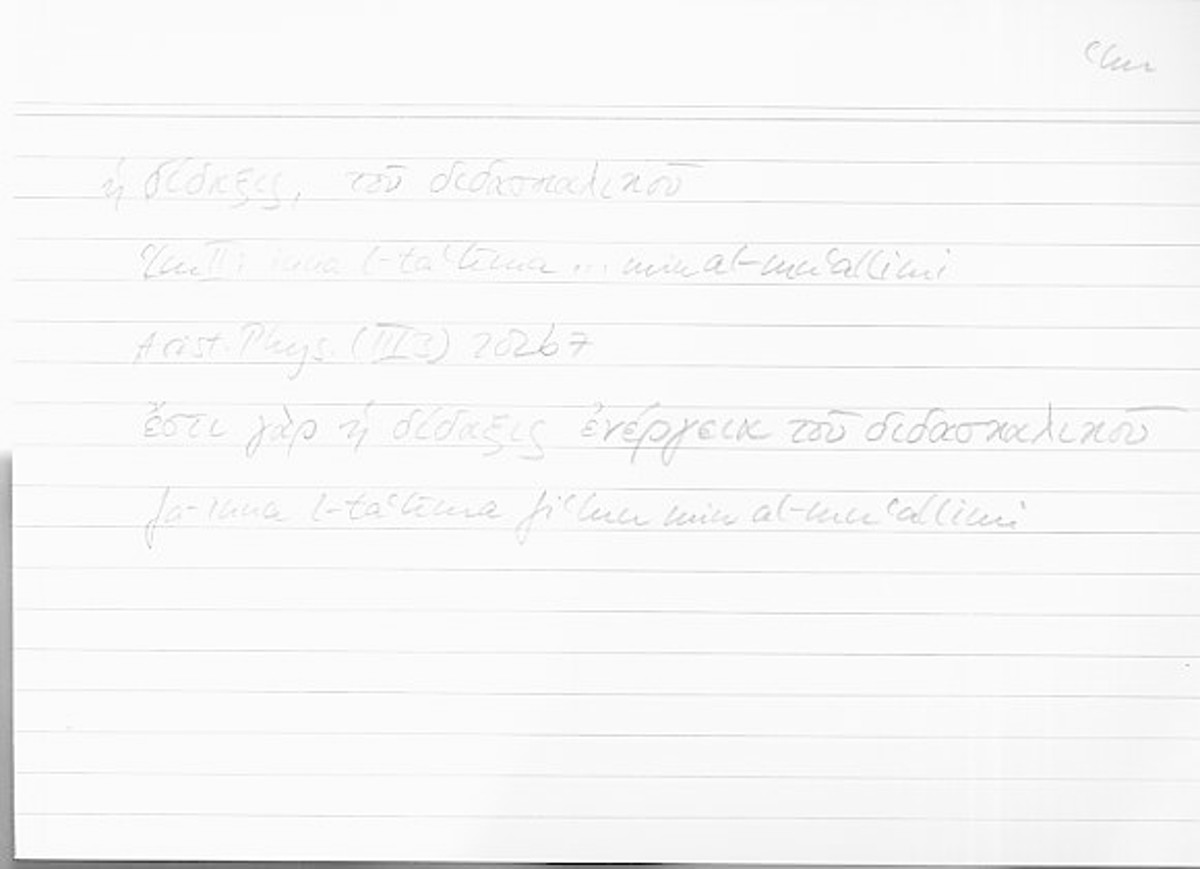 ʿlm
ἡ δίδαξις, τοῦ διδασκαλικοῦ
ʿlm II: inna l-taʿlīma ... min al-muʿallimi
Arist. Phys. (III 3) 202b7
ἔστι γὰρ ἡ δίδαξις ἐνέργεια τοῦ διδασκαλικοῦ
fa-inna l-taʿlīma fiʿlun min al-muʿallimi